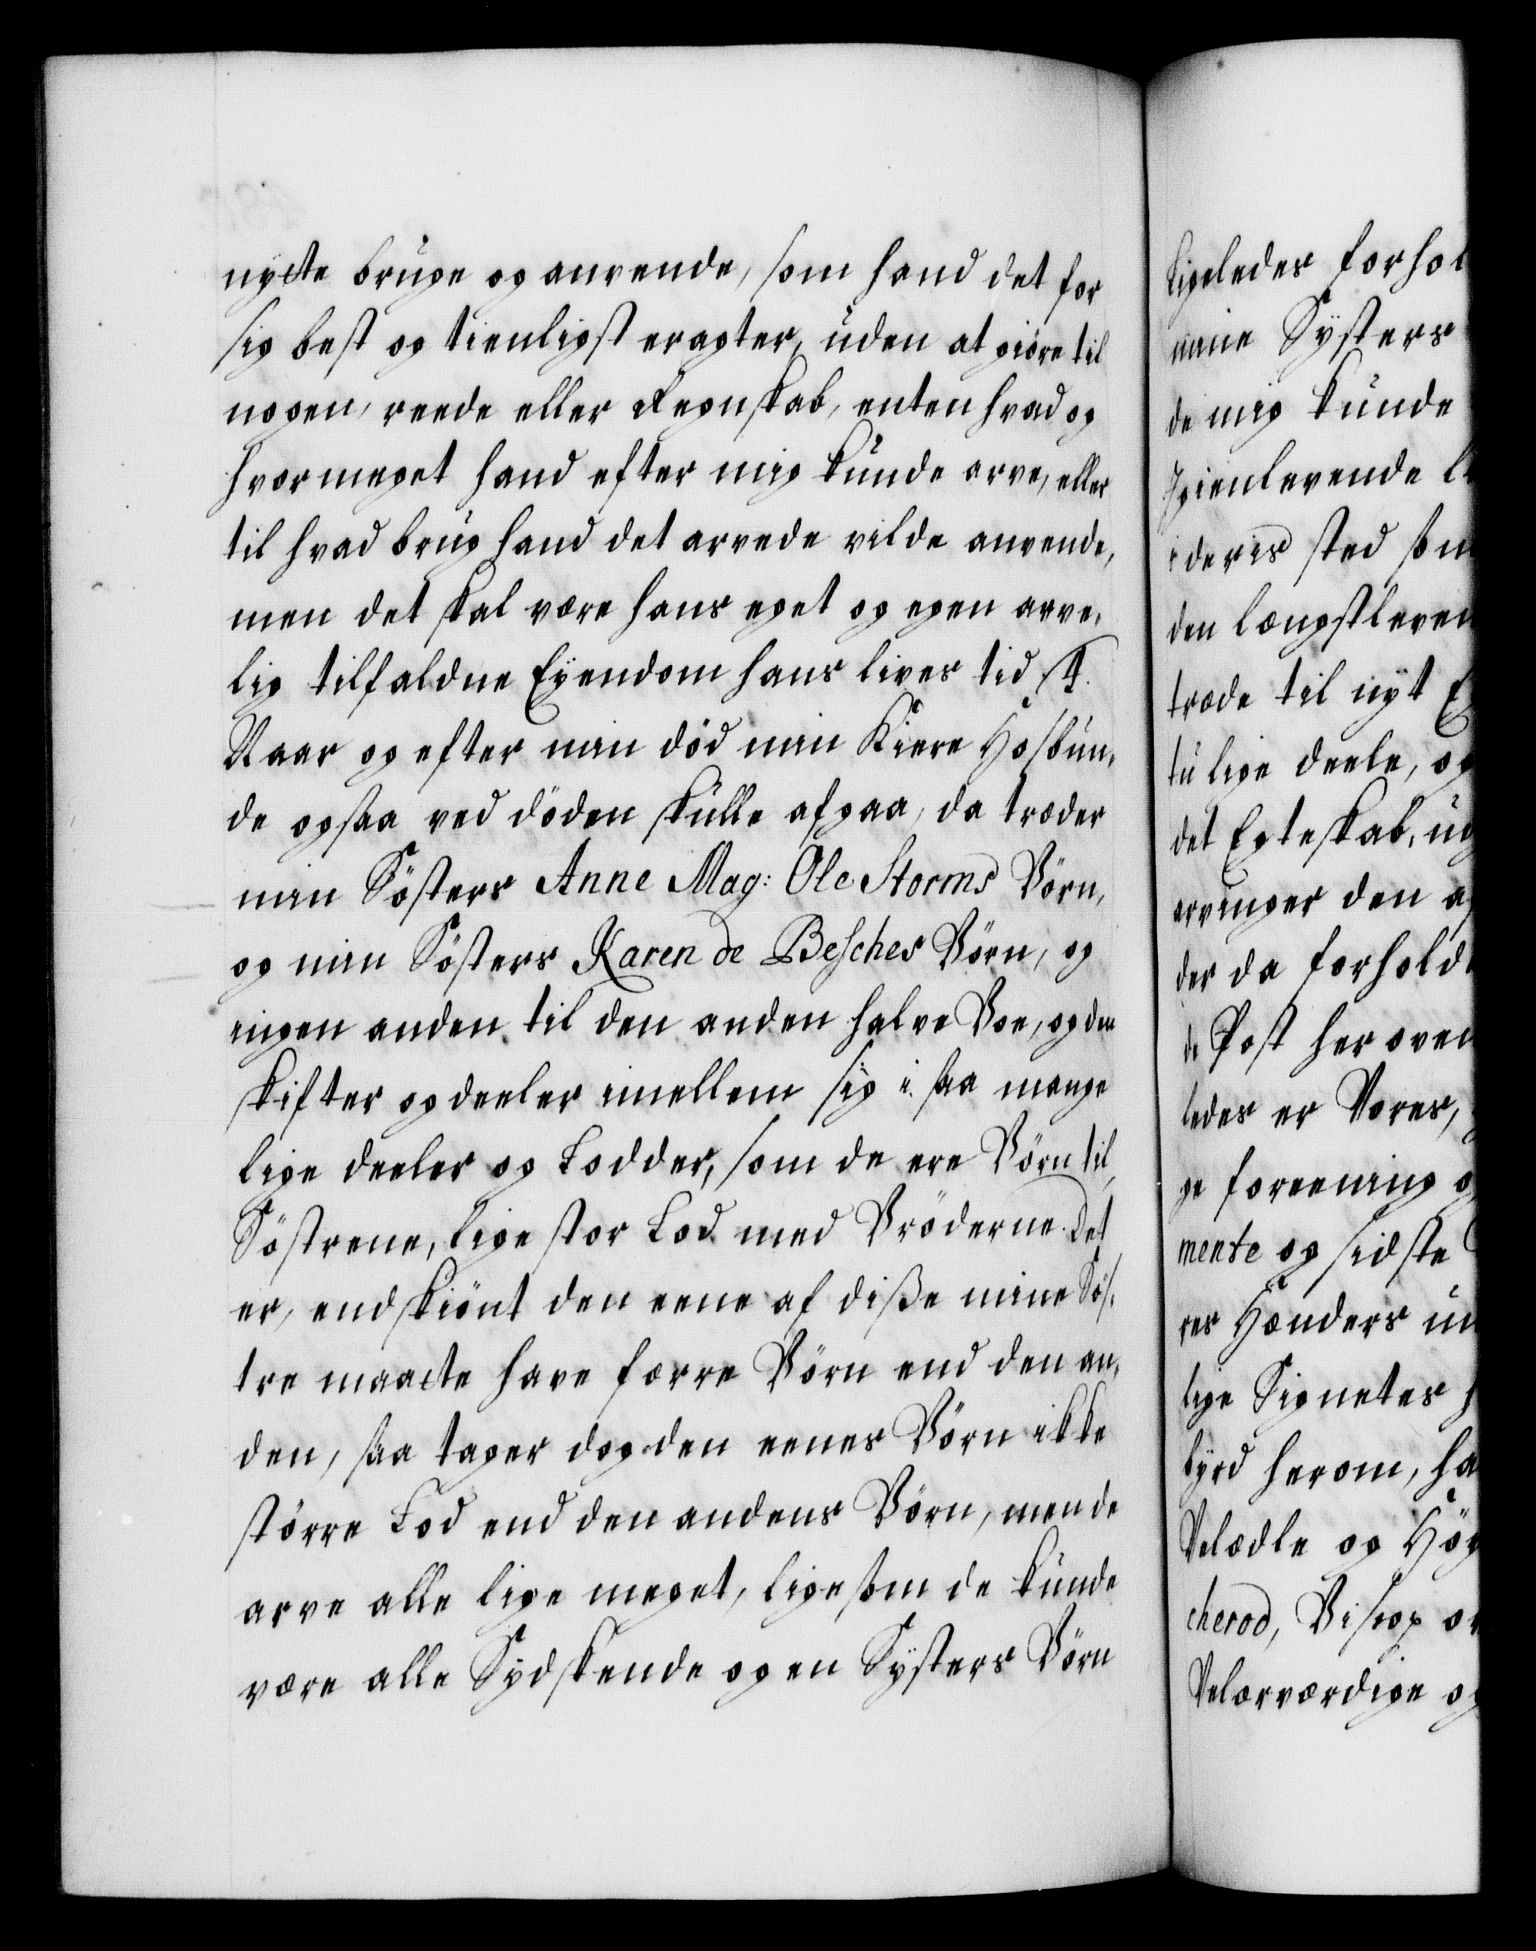 nytte bruge og anvende, som hand det for
sig best og tienligst eragter, uden at giöre til
nogen, reede eller Regnskab, enten hvad og
hvormeget hand efter mig kunde arve, eller
til hvad brug hand det arvede vilde anvende,
men det skal være hans eget og egen arve-
lig tilfaldne Eyendom hans lives tid
Naar og efter min död min Kiere Hosbun-
de ogsaa ved döden skulle afgaa, da træder
min Sösters Anne Mag: Ole Storms Börn,
og min Sösters Karen de Besches Börn, og
ingen anden til den anden halve Boe, og den
skifter og deeler imellem sig i saa mange
lige deeler og Lodder, som de ere Börn til,
Söstrene, lige stor Lod med Bröderne. Det
er, endskiönt den eene af diße mine Sös-
tre maatte have færre Börn end den an-
den, saa tager dog den eenes Börn ikke
större Lod end den andens Börn, men de
arve alle lige meget, ligesom de kunde
være alle Sydskende og en Systers Börn
ligeledes forhol
mine Systers
de mig kunde
Igienlevende
i deris sted som
den længstleven
træde til nyt
tu lige deele, og
det Egteskab, ud
arvinger den
der da forhold
de Post her oven
ledes er Vores,
ge foreening
mente og sidste
res Hænders un
lige Signeter
byrd herom, ha
Velædle og Hög
cherod, Biscop
Velærværdige og